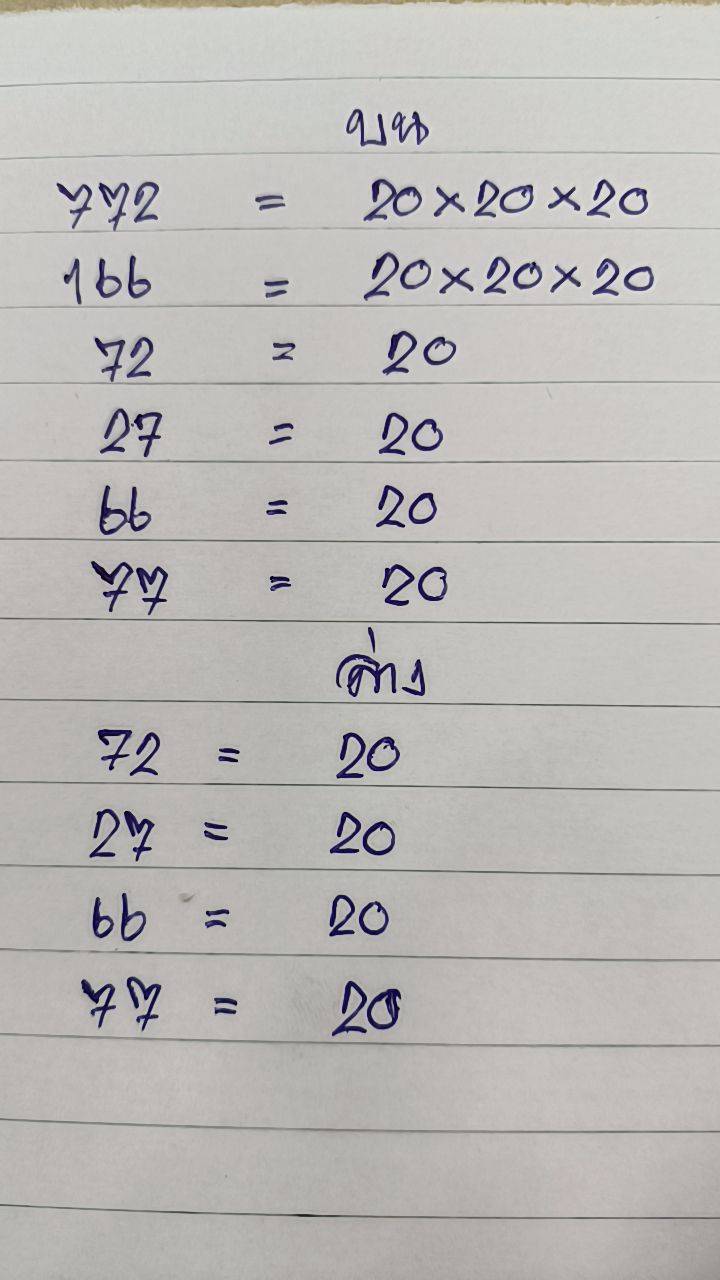 บน
772 = 20×20×20
166 = 20×20×20
72 = 20
27 = 20
66 = 20
77 = 20
ล่าง
72 = 20
27 = 20
66 = 20
77 = 20